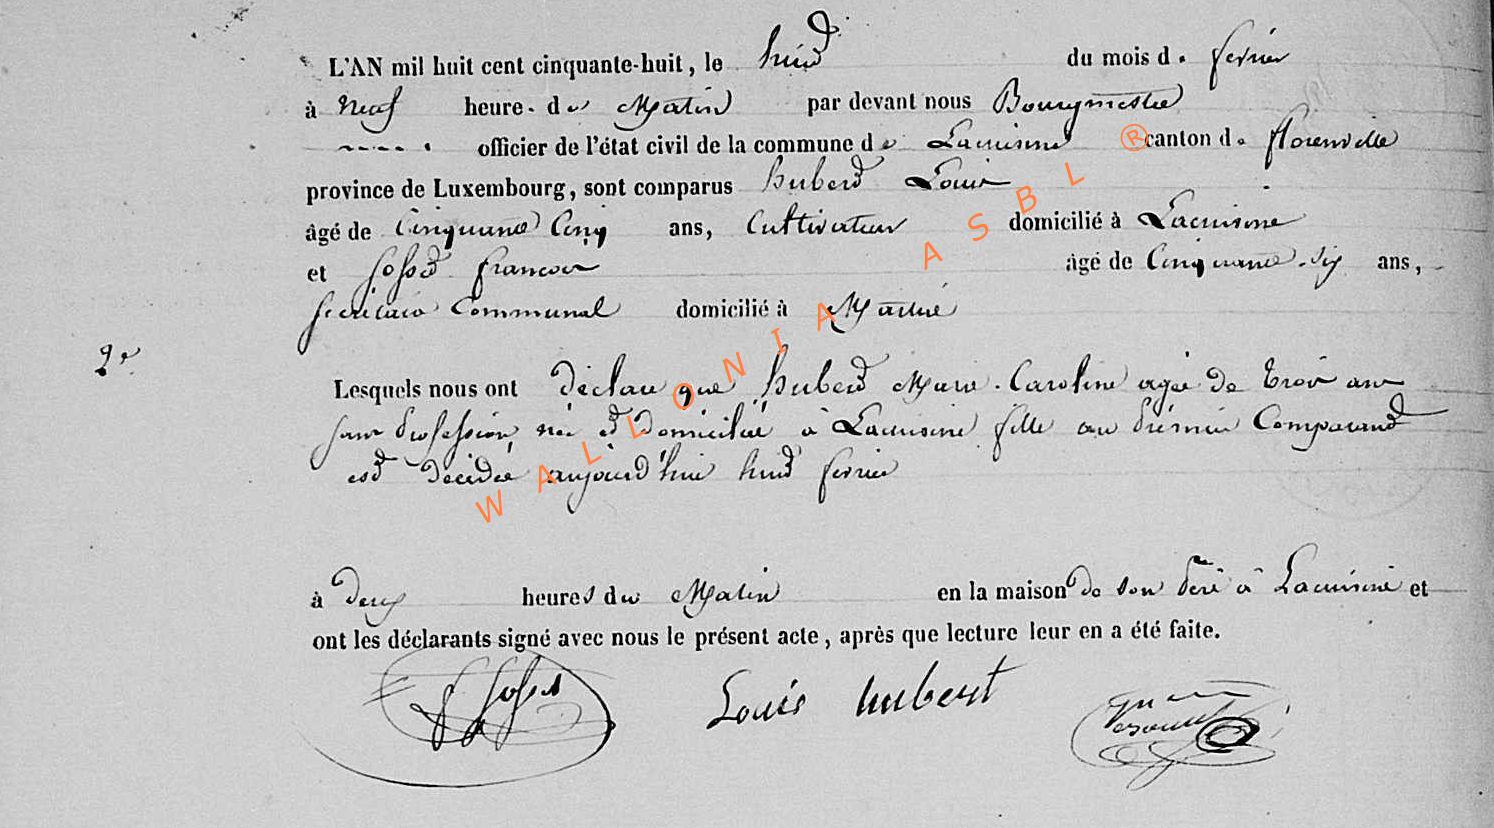 L'AN mil huit cent cinquante-huit, le huit du mois d. fevrier
à neuf heure. du Matin par devant nous Bourgmestre
officier de l'état civil de la commune de Lacuisine canton de florenville
province de Luxembourg, sont comparus hubert Louis
âgé de Cinquante Cinq ans, Cultivateur domicilié à Lacuisine
et françois âgé de Cinquante-six ans,
secrétaire Communal domicilié à
2e
Lesquels nous ont déclaré que hubert Marie Caroline agée de trois ans
sans profession, née et domiciliée à Lacuisine fille au prémier Comparant
est decédée aujourd'hui huit fevrier
à deux heures du Matin en la maison de son père à Lacuisine et
ont les déclarants signé avec nous le présent acte, après que lecture leur en a été faite.
Louis hubert
WALLONIA ASBL ®